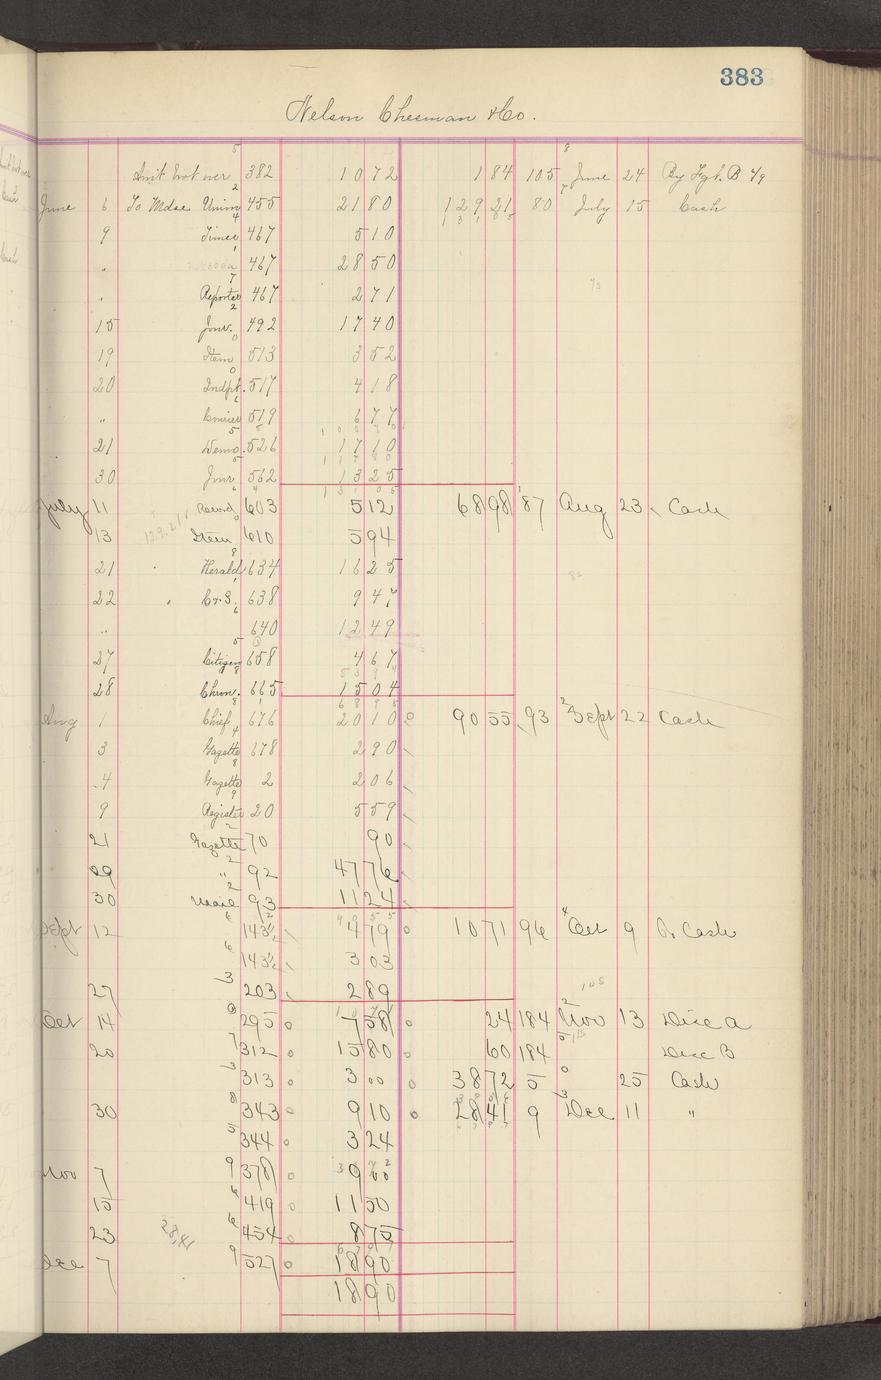 383
Nelson Chesman & Co.
Am't bro't over 382 10 72 1 84 105 June 24 By
June 6 To Mdse Union 455 21 80 129 21 80 July 15 Cash
9 Times 467 5 10
" 467 28 50
" Reporter 467 2 71
15 Jour. 492 17 40
19 Item 513 3 52
20 Indpt. 517 4 18
" Courier 519 6 77
21 Demo. 526 17 10
30 Jour 562 13 25
July 11 Record 603 5 12 68 98 87 Aug 23 Cash
13 Item 610 5 94
21 Herald 634 16 25
22 638 9 47
" 640 12 49
27 Citizen 658 4 67
28 Chron. 665 15 04
Aug 1 Chief 676 20 10 90 55 93 Sept 22 Cash
3 Gazette 678 2 90
4 Gazette 2 2 06
9 Register 20 5 59
21 Gazette 70 90
29 " 92 47 76
30 Mail 93 11 24
Sept 12 143½ 4 79 10 71 96 Oct 9 Cash
143½ 3 03
27 203 2 89
Oct 14 295 7 58 24 184 Nov 13 Disc a
20 312 15 80 60 184 Disc B
313 3 00 38 72 5 25 Cash
30 343 9 10 28 41 9 Dec 11 "
344 3 24
Nov 7 378 9 00
15 419 11 50
23 454 8 75
28,41
Dec 7 527 18 90
18 90